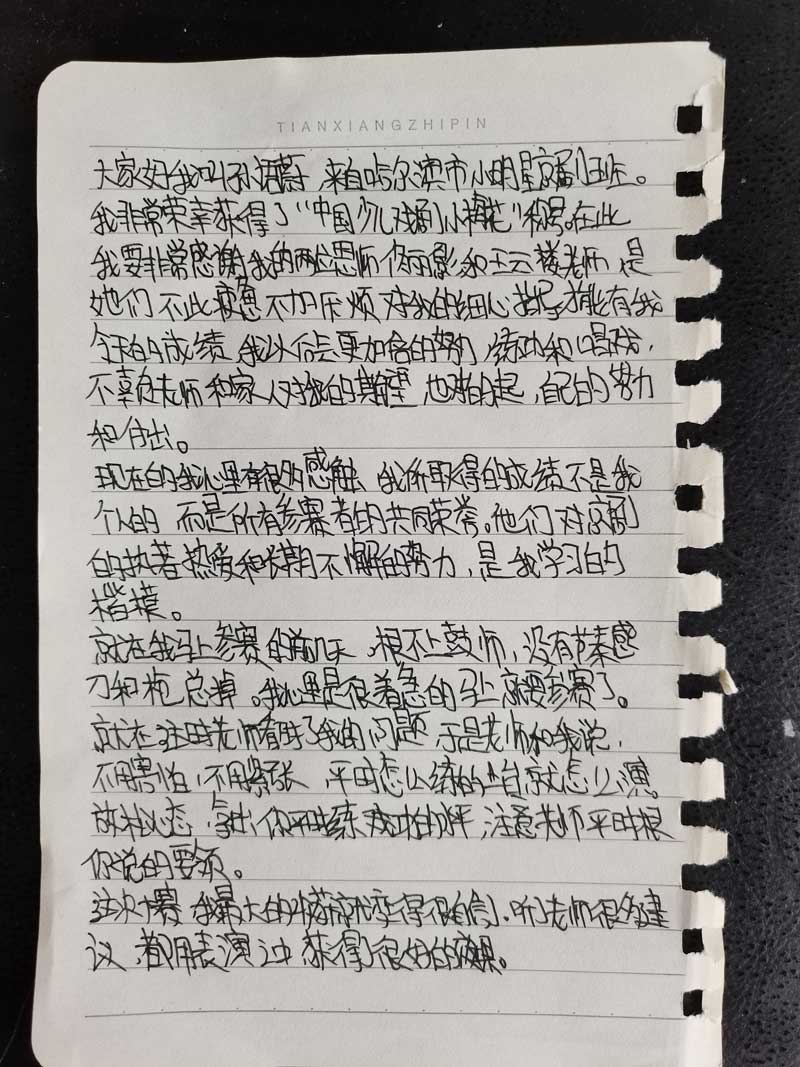 TIANXIANGZHIPIN
大家好我叫孙语蔚,来自哈尔滨市小明星京剧班。
我非常荣幸获得了“中国少儿戏剧小梅花”称号。在此
我要非常感谢我的两位恩师佟丽影和王云楼老师,是
她们不此疲惫不加厌烦对我的细心指导才能有我
今天的成绩,我以后会更加倍的努力,练功和唱戏,
不辜负老师和家人对我的期望,也对的起,自己的努力
和付出。
现在的我心里有很多感触,我所取得的成绩不是我
个人的,而是所有参赛者的共同荣誉。他们对京剧
的执著热爱和长期不懈的努力,是我学习的
楷模。
就在我马上参赛的前几天,根不上鼓师,没有节奏感
刀和枪总掉。我心里是很着急的马上就要参赛了。
就在这时老师看时了我的问题,于是老师和我说,
不用害怕,不用紧张,平时怎么练的上台就怎么演
放松心态,拿出你平时练功时的水平,注意老师平时根
你说的要领。
这次大赛,我最大的收获就变得很自信,听老师很多建
议,都用表演之中,获得了很好的效果。